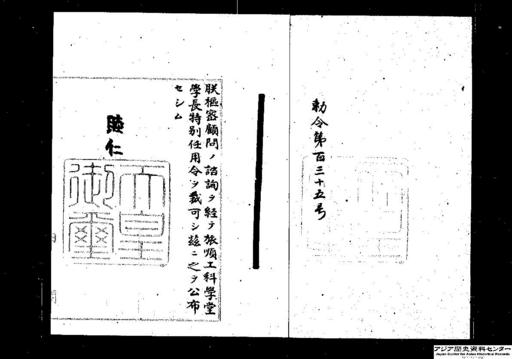 勅令第百三十五号
朕樞密顧問ノ諮詢ヲ経テ旅順工科學堂
學長特別任用令ヲ裁可シ玆ニ之ヲ公布
セシム
睦仁
天皇
御璽
アジア歴史資料センター
Japan Center for Asian Historical Records